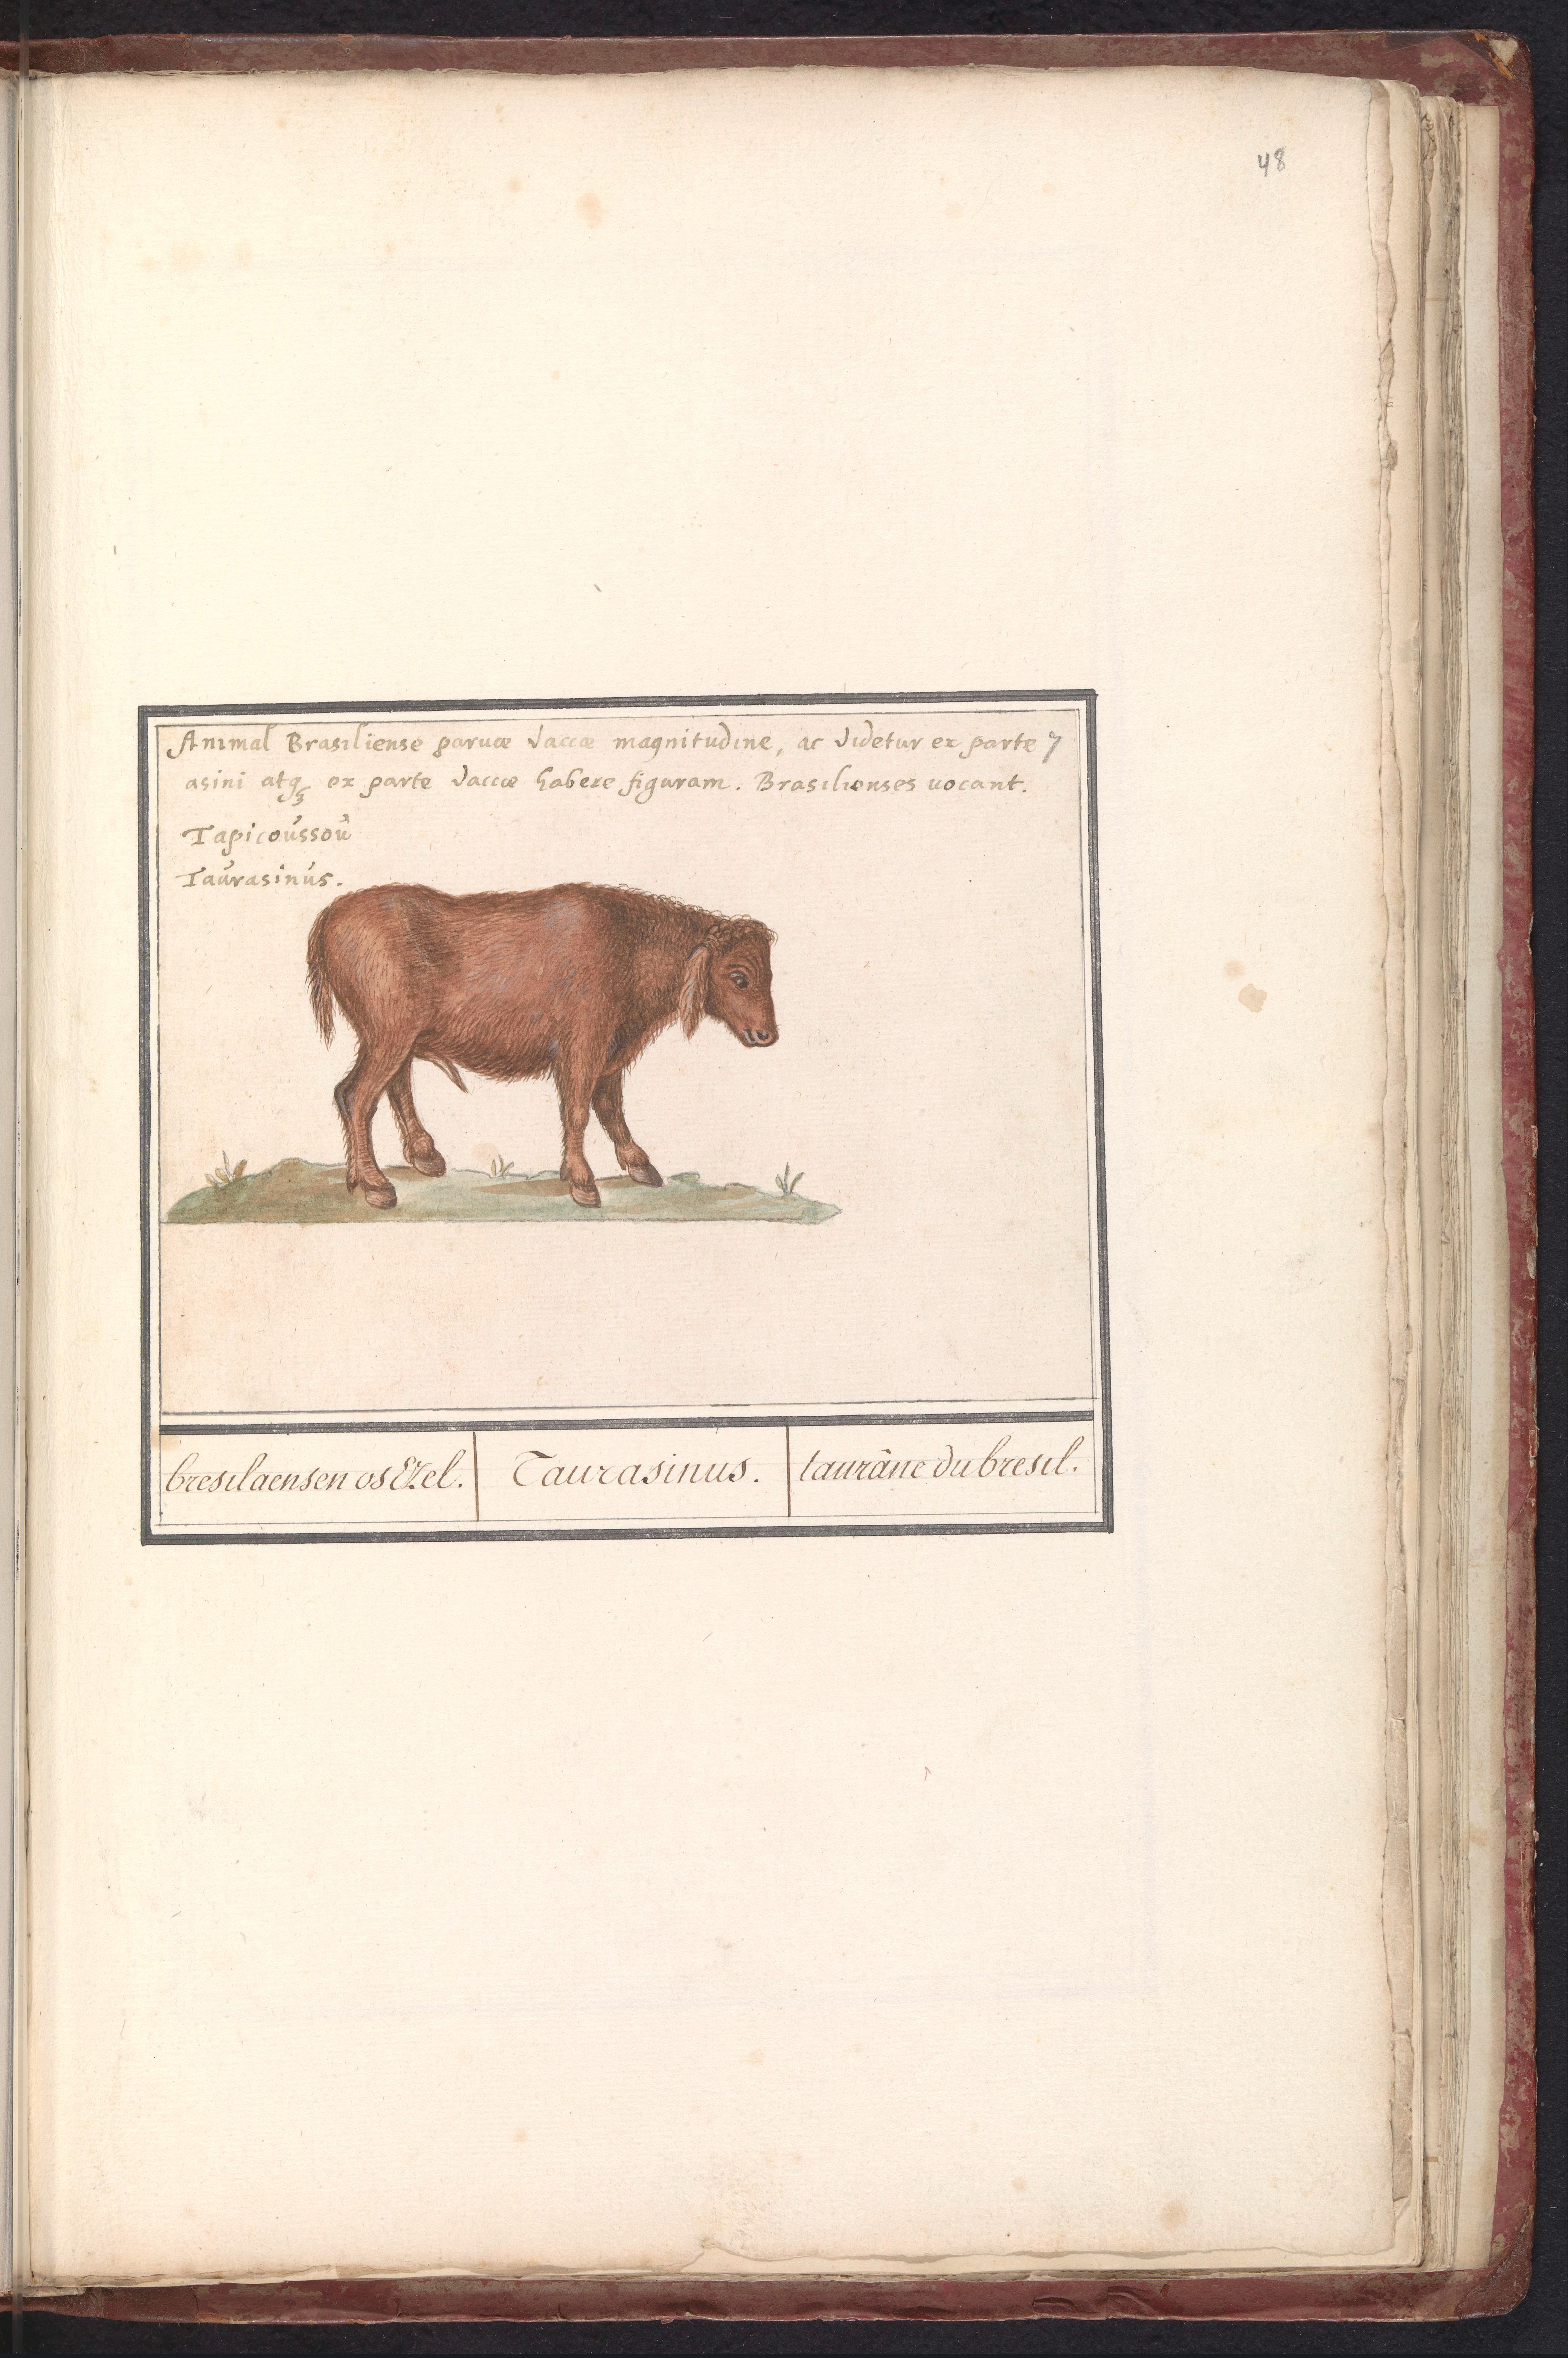 48
Animal Brasiliense paruæ vaccæ magnitudine, ac videtur ex parte
asini atq₃ ex parte vaccæ habere figuram. Brasilienses uocant.
Tapicoússoú
Taúrasinús.
bresilaensen os Ezel. Taurasinus. taurâne du bresil.